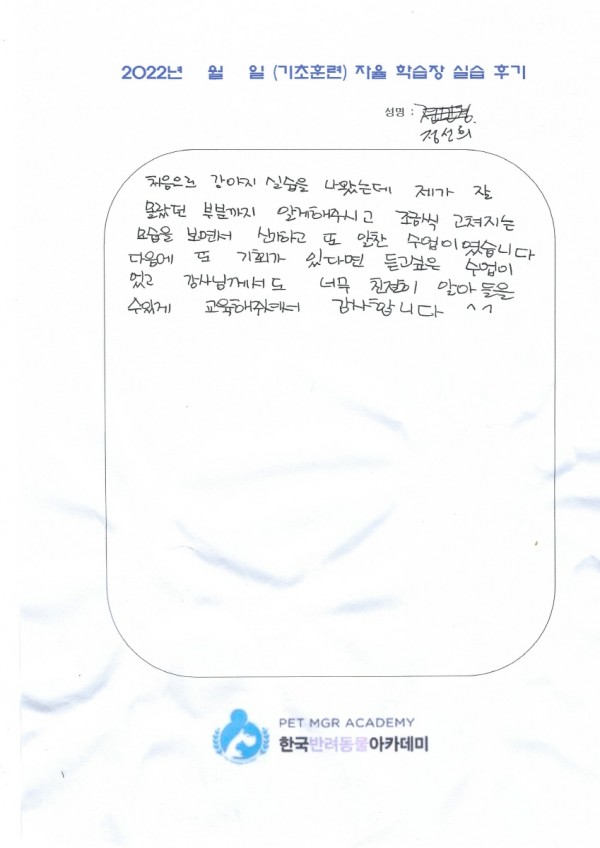 2022년 월 일 (기초훈련) 자율 학습장 실습 후기
성명 :
정선희
처음으로 강아지 실습을 나왔는데 제가 잘
몰랐던 부분까지 알게해주시고 조금씩 고쳐지는
모습을 보면서 신기하고 또 알찬 수업이였습니다
다음에 또 기회가 있다면 듣고싶은 수업이
었고 강사님께서도 너무 친절히 알아 들을
수있게 교육해주셔서 감사합니다 ^^
PET MGR ACADEMY
한국반려동물아카데미